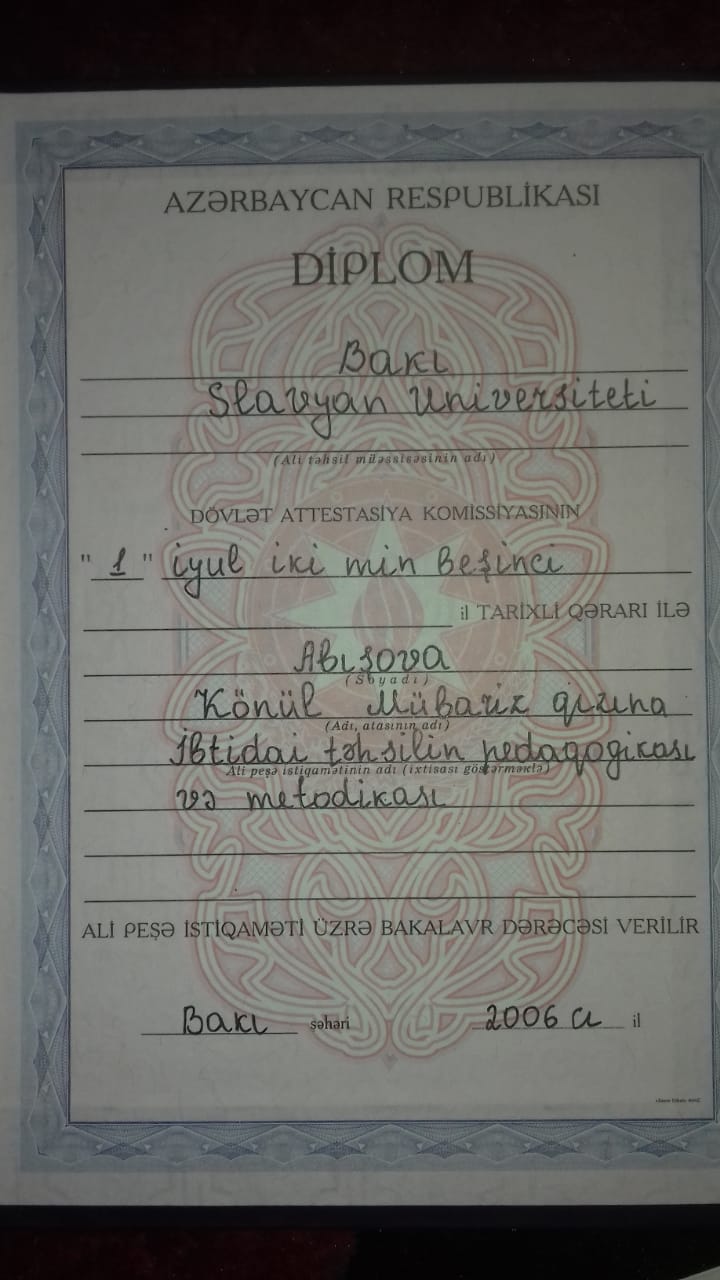 AZƏRBAYCAN RESPUBLİKASI
DİPLOM
Bakı
Slavyan Universiteti
(Ali təhsil müəssisəsinin adı)
DÖVLƏT ATTESTASİYA KOMİSSİYASININ
" 1 " iyul iki min beşinci
il TARİXLİ QƏRARI İLƏ
Abışova
(Soyadı)
Könül Mübariz qızına
(Adı, atasının adı)
İbtidai təhsilin pedaqogikası
Ali peşə istiqamətinin adı (ixtisası göstərməklə)
və metodikası
ALİ PEŞƏ İSTİQAMƏTİ ÜZRƏ BAKALAVR DƏRƏCƏSİ VERİLİR
Bakı şəhəri 2006 cı il